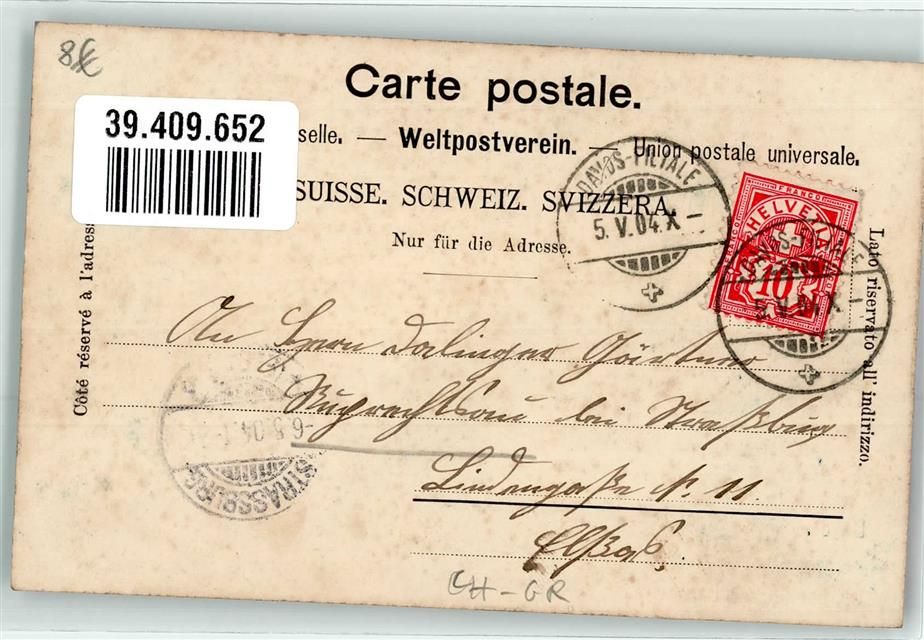 8€
Carte postale.
39.409.652
selle. — Weltpostverein. — Union postale universale.
SUISSE. SCHWEIZ. SVIZZERA.
Nur für die Adresse.
Côté réservé à l'adresse
Lato riservato all' indirizzo.
DAVOS-FILIALE
5.V.04.X-
FRANCO
HELVETIA
10
5.V.04.X-
An Herrn Dalinger Gärtner
Ruprechtsau bei Straßburg
Lindengaße N. 11.
Elsaß.
-6.5.04.
STRASSBURG
CH-GR